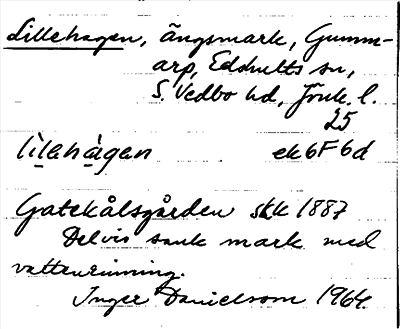 Lillehagen, ängsmark, Gumm-
arp, Edshults sn,
S. Vedbo hd, Jönk. l.
25
lilahagan ek 6F 6d
Gatekålsgården skk 1887
Delvis sank mark med
vattenrinning.
Inger Danielsson 1964.